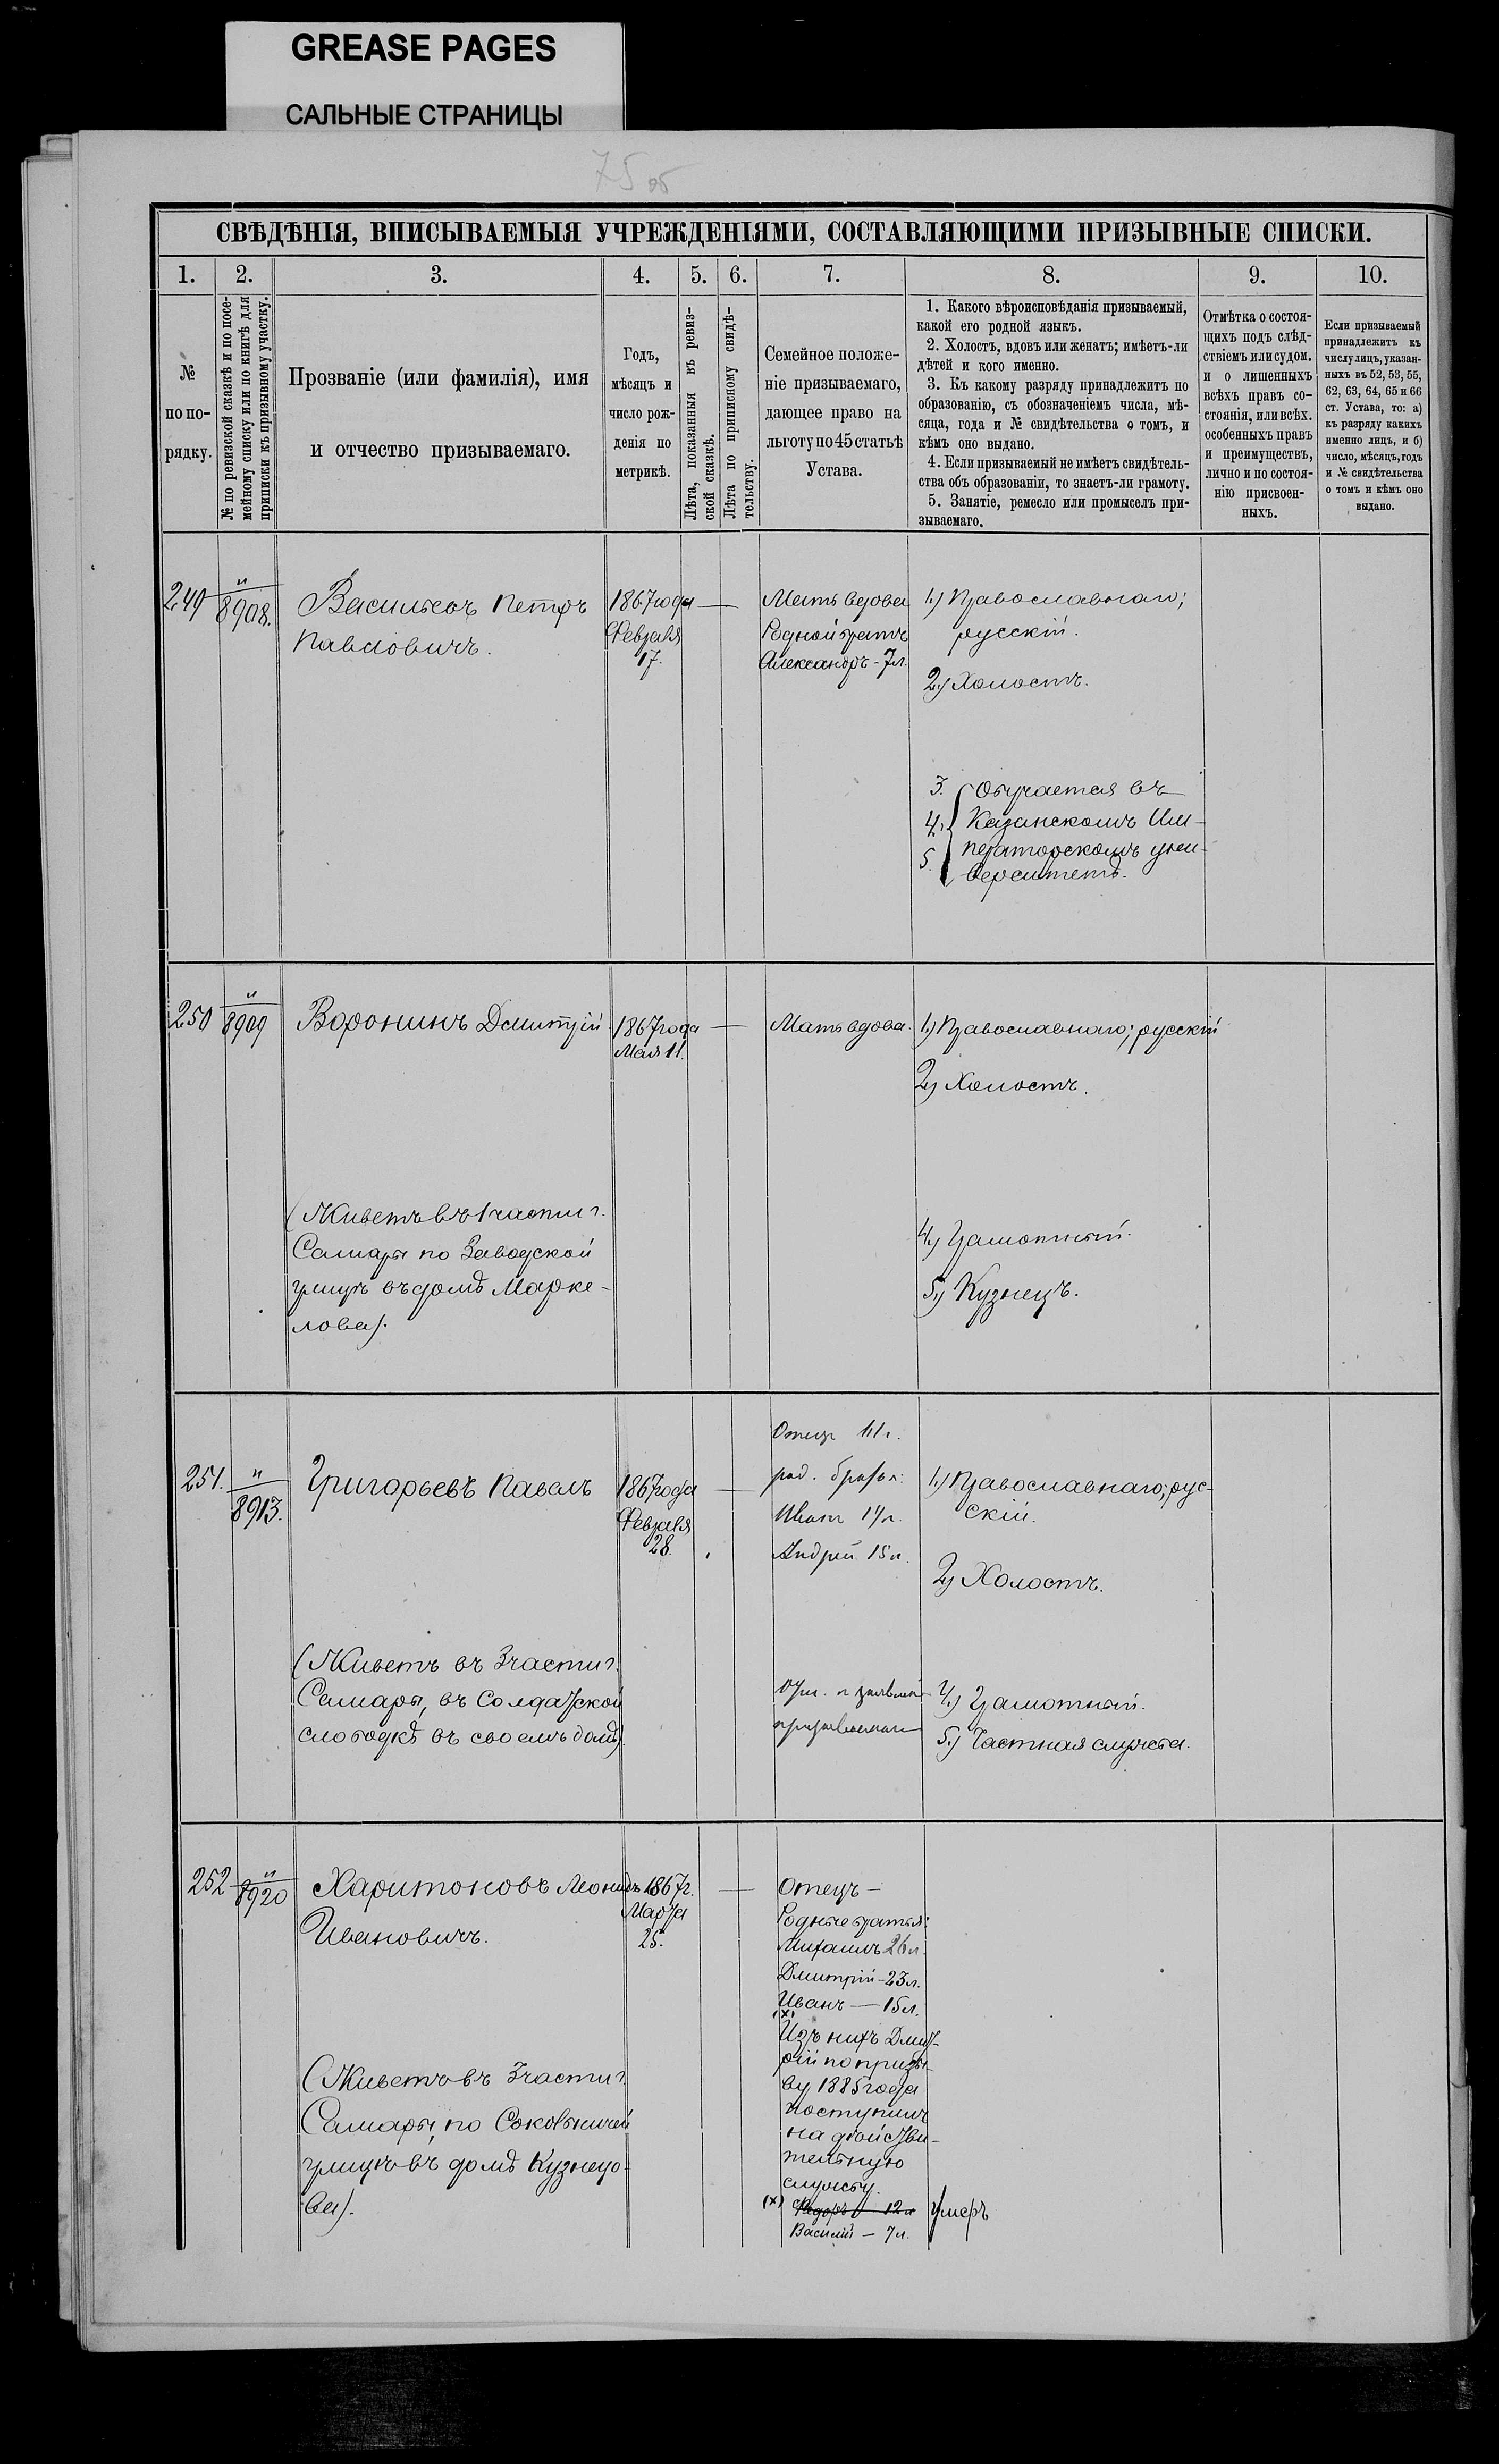 GREASE PAGES
САЛЬНЫЕ СТРАНИЦЫ
75 об
СВѢДѢНІЯ, ВПИСЫВАЕМЫЯ УЧРЕЖДЕНІЯМИ, СОСТАВЛЯЮЩИМИ ПРИЗЫВНЫЕ СПИСКИ.
1. 2. 3. 4. 5. 6. 7. 8. 9. 10.
№
по по-
рядку.
№ по ревизской сказкѣ и по посе-
мейному списку или по книгѣ для
приписки къ призывному участку.
Прозваніе (или фамилія), имя
и отчество призываемаго.
Годъ,
мѣсяцъ и
число рож-
денія по
метрикѣ.
Лѣта, показанныя въ ревиз-
ской сказкѣ.
Лѣта по приписному свидѣ-
тельству.
Семейное положе-
ніе призываемаго,
дающее право на
льготу по 45 статьѣ
Устава.
1. Какого вѣроисповѣданія призываемый,
какой его родной языкъ.
2. Холостъ, вдовъ или женатъ; имѣетъ-ли
дѣтей и кого именно.
3. Къ какому разряду принадлежитъ по
образованію, съ обозначеніемъ числа, мѣ-
сяца, года и № свидѣтельства о томъ, и
кѣмъ оно выдано.
4. Если призываемый не имѣетъ свидѣтель-
ства объ образованіи, то знаетъ-ли грамоту.
5. Занятіе, ремесло или промыселъ при-
зываемаго.
Отмѣтка о состоя-
щихъ подъ слѣд-
ствіемъ или судом.
и о лишенныхъ
всѣхъ правъ со-
стоянія, или всѣх.
особенныхъ правъ
и преимуществъ,
лично и по состоя-
нію присвоен-
ныхъ.
Если призываемый
принадлежитъ къ
числу лицъ, указан-
ныхъ въ 52, 53, 55,
62, 63, 64, 65 и 66
ст. Устава, то: а)
къ разряду какихъ
именно лицъ, и б)
число, мѣсяцъ, годъ
и № свидѣтельства
о томъ и кѣмъ оно
выдано.
249
"
8908.
Васильевъ Петръ
Павловичъ.
1867 года
Февраля
17.
Мать вдова
Родной братъ
Александръ - 7 л.
1.) Православнаго;
русскій.
2.) Холостъ.
3. Обучается въ
4. Казанскомъ Им-
5. ператорскомъ уни-
верситетѣ.
250
"
8909
Воронинъ Дмитрій
1867 года
Мая 11.
Мать вдова.
1.) Православнаго; русскій
2.) Холостъ.
(Живетъ въ 1 части г.
Самары по Заводской
улицѣ въ домѣ Марке-
лова).
4.) Грамотный.
5.) Кузнецъ.
251.
"
8913.
Григорьевъ Павелъ
1867 года
Февраля
28.
Отецъ 41 г.
род. братья:
Иванъ 17 л.
Андрей 15 л.
1.) Православнаго; рус-
скій.
2.) Холостъ.
(Живетъ въ 3 части г.
Самары, въ Солдатской
слободкѣ въ своемъ домѣ).
4.) Грамотный.
5.) Частная служба.
252
"
8920
Харитоновъ Леонидъ
Ивановичъ.
1867 г.
Марта
25.
Отецъ -
Родные братья:
Михаилъ 26 л.
Дмитрій - 23 л.
Иванъ — 15 л.
(х)
Изъ нихъ Дмит-
рій по призы-
ву 1885 года
поступилъ
на дѣйстви-
тельную
службу.
(х) Федоръ 12 л Умеръ
Василій - 7 л.
(Живетъ въ 3 части г.
Самары, по Сокольничей
улицѣ въ домѣ Кузнецо-
ва).